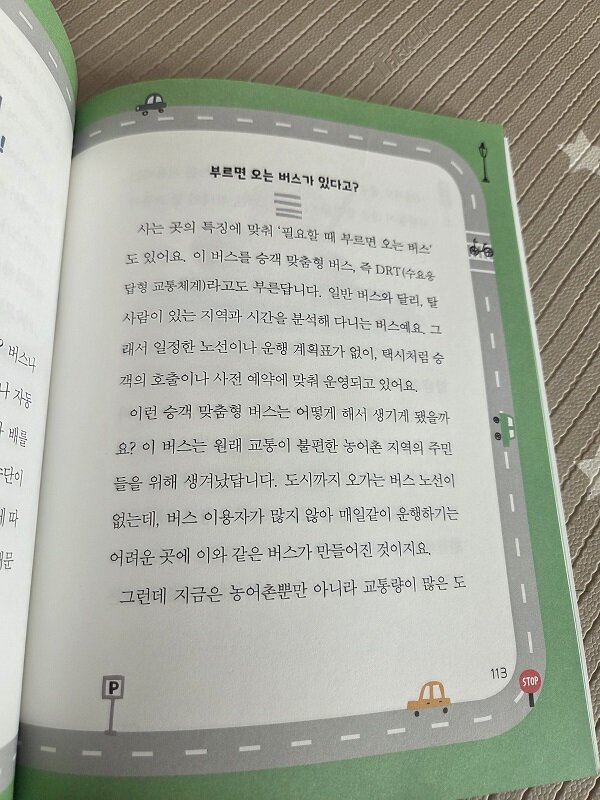 부르면 오는 버스가 있다고?
사는 곳의 특징에 맞춰 ‘필요할 때 부르면 오는 버스’
도 있어요. 이 버스를 승객 맞춤형 버스, 즉 DRT(수요응
답형 교통체계)라고도 부른답니다. 일반 버스와 달리, 탈
사람이 있는 지역과 시간을 분석해 다니는 버스예요. 그
래서 일정한 노선이나 운행 계획표가 없이, 택시처럼 승
객의 호출이나 사전 예약에 맞춰 운영되고 있어요.
이런 승객 맞춤형 버스는 어떻게 해서 생기게 됐을까
요? 이 버스는 원래 교통이 불편한 농어촌 지역의 주민
들을 위해 생겨났답니다. 도시까지 오가는 버스 노선이
없는데, 버스 이용자가 많지 않아 매일같이 운행하기는
어려운 곳에 이와 같은 버스가 만들어진 것이지요.
그런데 지금은 농어촌뿐만 아니라 교통량이 많은 도
113
P
STOP
!
? 버스나
나 자동
배를
수단이
에 따